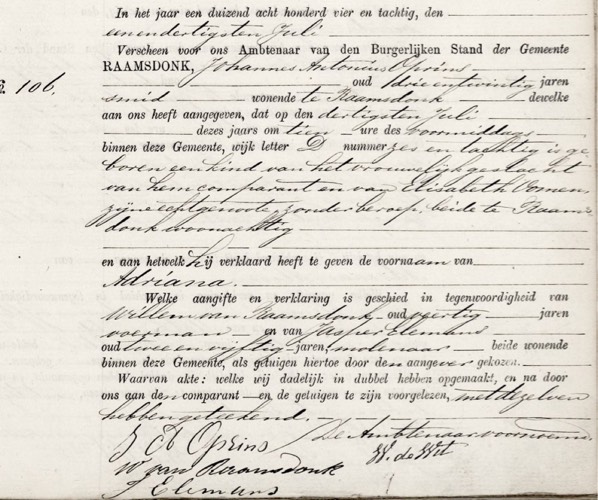 In het jaar een duizend acht honderd vier en tachtig, den
eenendertigsten Juli
Verscheen voor ons Ambtenaar van den Burgerlijken Stand der Gemeente
RAAMSDONK, Johannes Antonius Oprins
106. oud drieentwintig jaren
smid wonende te Raamsdonk dewelke
aan ons heeft aangegeven, dat op den dertigsten Juli
dezes jaars om tien ure des voormiddags
binnen deze Gemeente, wijk letter D nummer zes en tachtig is ge
boren een kind van het vrouwelijk geslacht
van hem comparant en van Elisabeth Vomen,
zijne echtgenoote, zonder beroep, beide te Raams
donk woonachtig
en aan hetwelk hij verklaard heeft te geven de voornaam van
Adriana.
Welke aangifte en verklaring is geschied in tegenwoordigheid van
Willem van Raamsdonk oud veertig jaren
voerman en van Jasper Elemans
oud twee en vijftig jaren, molenaar beide wonende
binnen deze Gemeente, als getuigen hiertoe door den aangever gekozen.
Waarvan akte: welke wij dadelijk in dubbel hebben opgemaakt, en na door
ons aan den comparant en de getuigen te zijn voorgelezen, met dezelven
hebben geteekend.
De Ambtenaar voornoemd
Oprins
W. de Wit
W van Raamsdonk
J Elemans